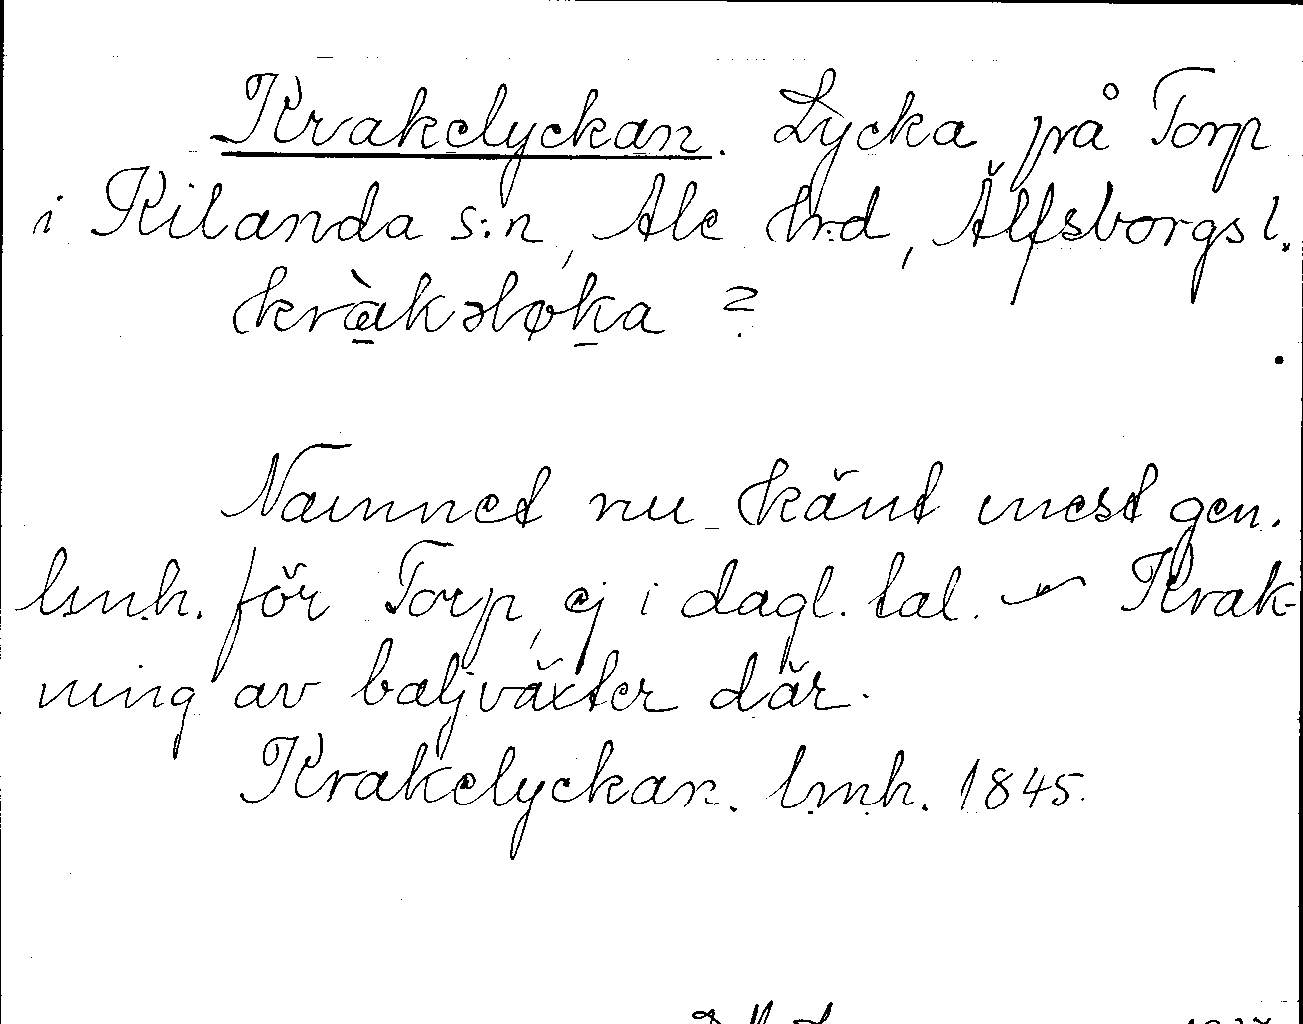 Krakelyckan. Lycka på Torp
i Kilanda s:n, Ale h:d, Älfsborgs l.
kràkəløka ?
Namnet nu känt mest gen.
lmh. för Torp, ej i dagl. tal. — Krak-
ning av baljväxter där.
Krakelyckan. lmh. 1845.